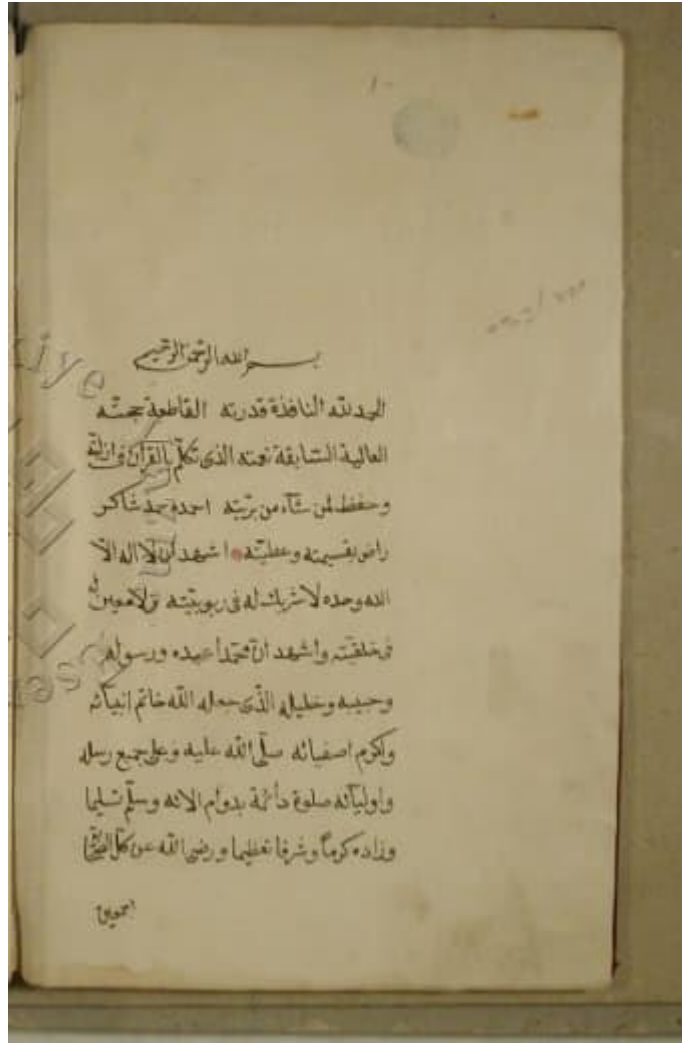 بسم الله الرحمن الرحيم
الحمد لله النافذة قدرته القاطعة حجته
العالية السابقة نعمته الذى تكلّم بالقرآن فى ازليّته
وحفظ لمن شآء من بريّته احمده حمد شاكر
راض بقسيمته وعطيّته اشهد ان لا اله الّا
الله وحده لا شريك له فى ربوبيّته ولا معين له
فى خلقيّته واشهد انّ محمّدا عبده ورسوله
وحبيبه وخليله الذّى جعله الله خاتم انبيآئه
واكرم اصفيائه صلّى الله عليه وعلى جميع رسله
واوليآئه صلوة دآئمة بدوام الائه وسلّم تسليما
وزاده كرماً وشرفا تعظيما ورضى الله عن كلّ الصحابة
اجمعين